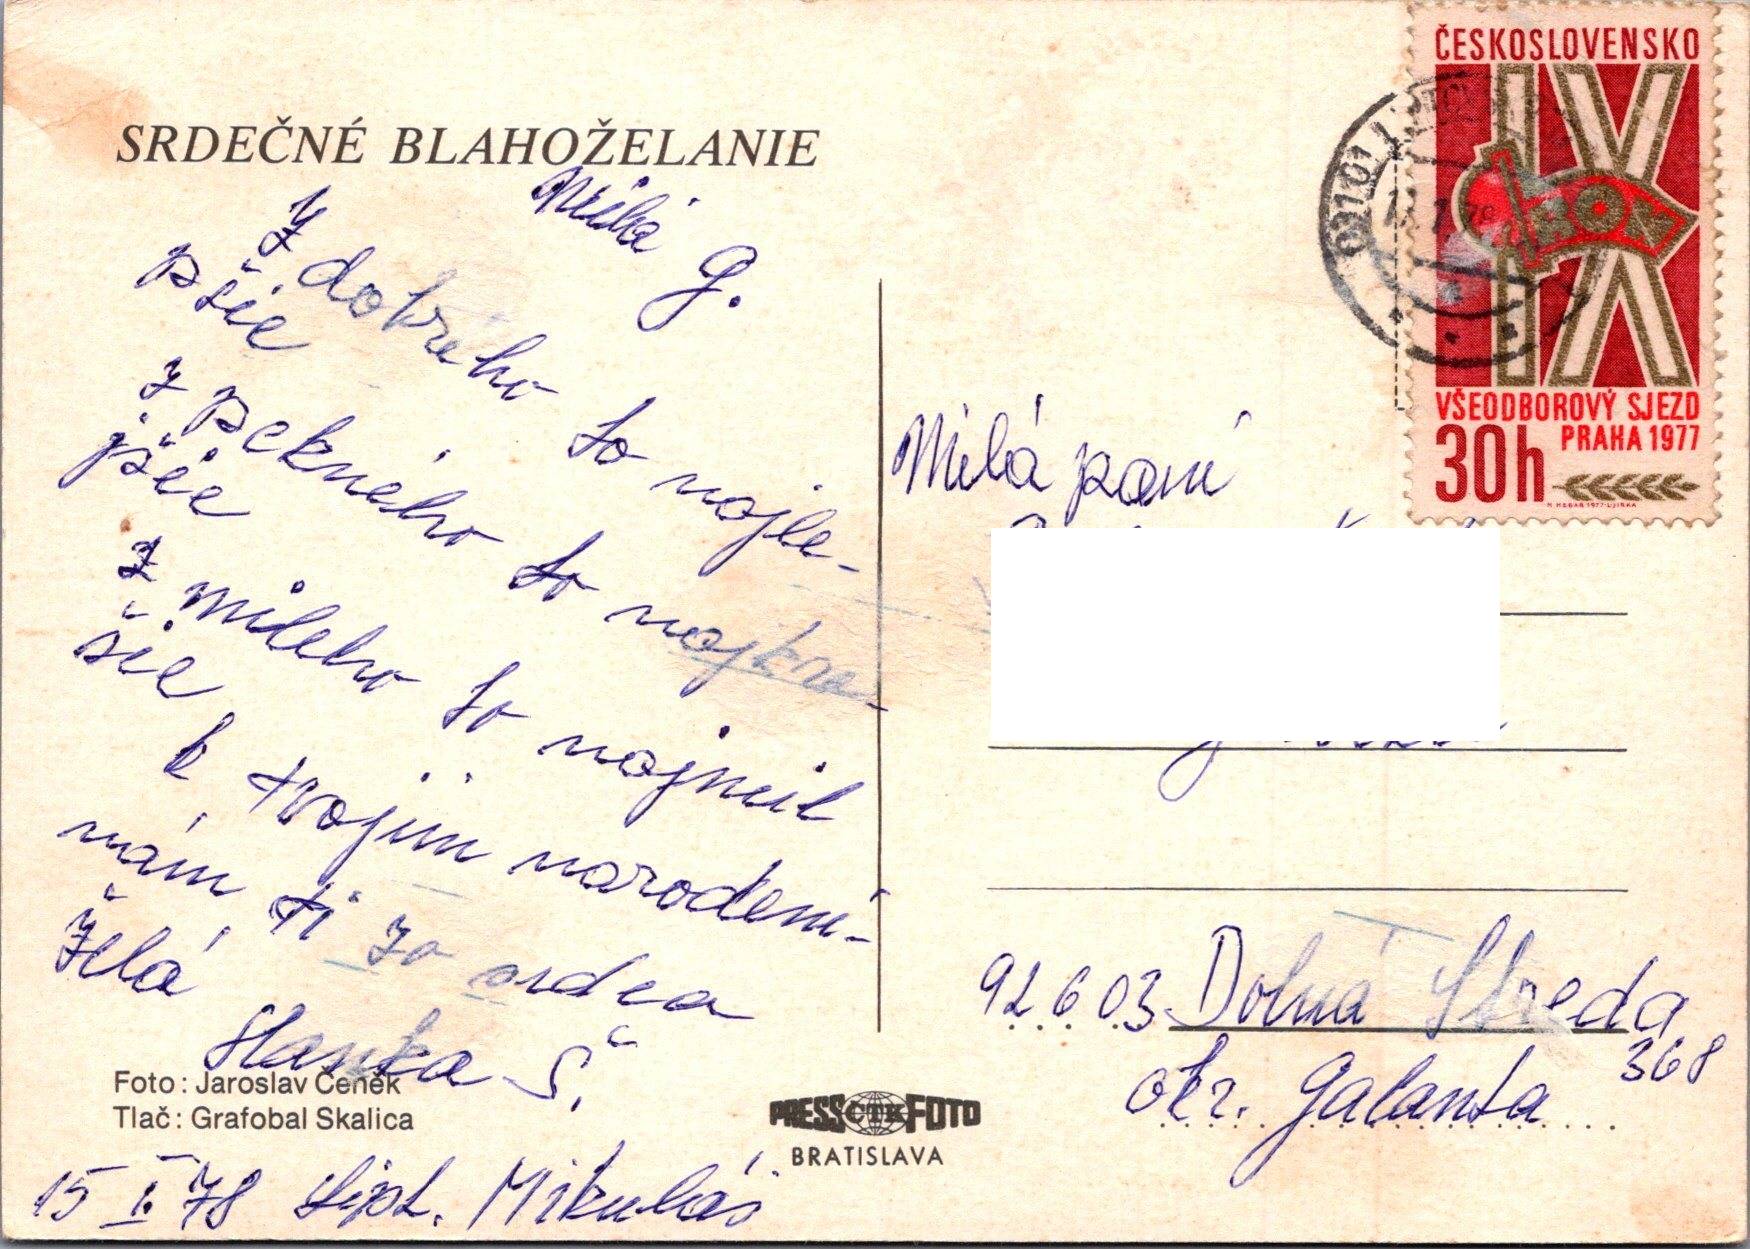 SRDEČNÉ BLAHOŽELANIE
Milá G.
Z dobrého to najle-
pšie
z pekného to najkra-
jšie
z milého to najmil
šie
k tvojim narodeni-
nám ti zo srdca
želá
Hanka Š.
Foto: Jaroslav Čeněk
Tlač: Grafobal Skalica
15 I. 78 Lipt. Mikuláš
PRESS ČTK FOTO
BRATISLAVA
ČESKOSLOVENSKO
IX
ROH
VŠEODBOROVÝ SJEZD
PRAHA 1977
30h
031 01
Milá pani
926 03 Dolná Streda
368
okr. Galanta